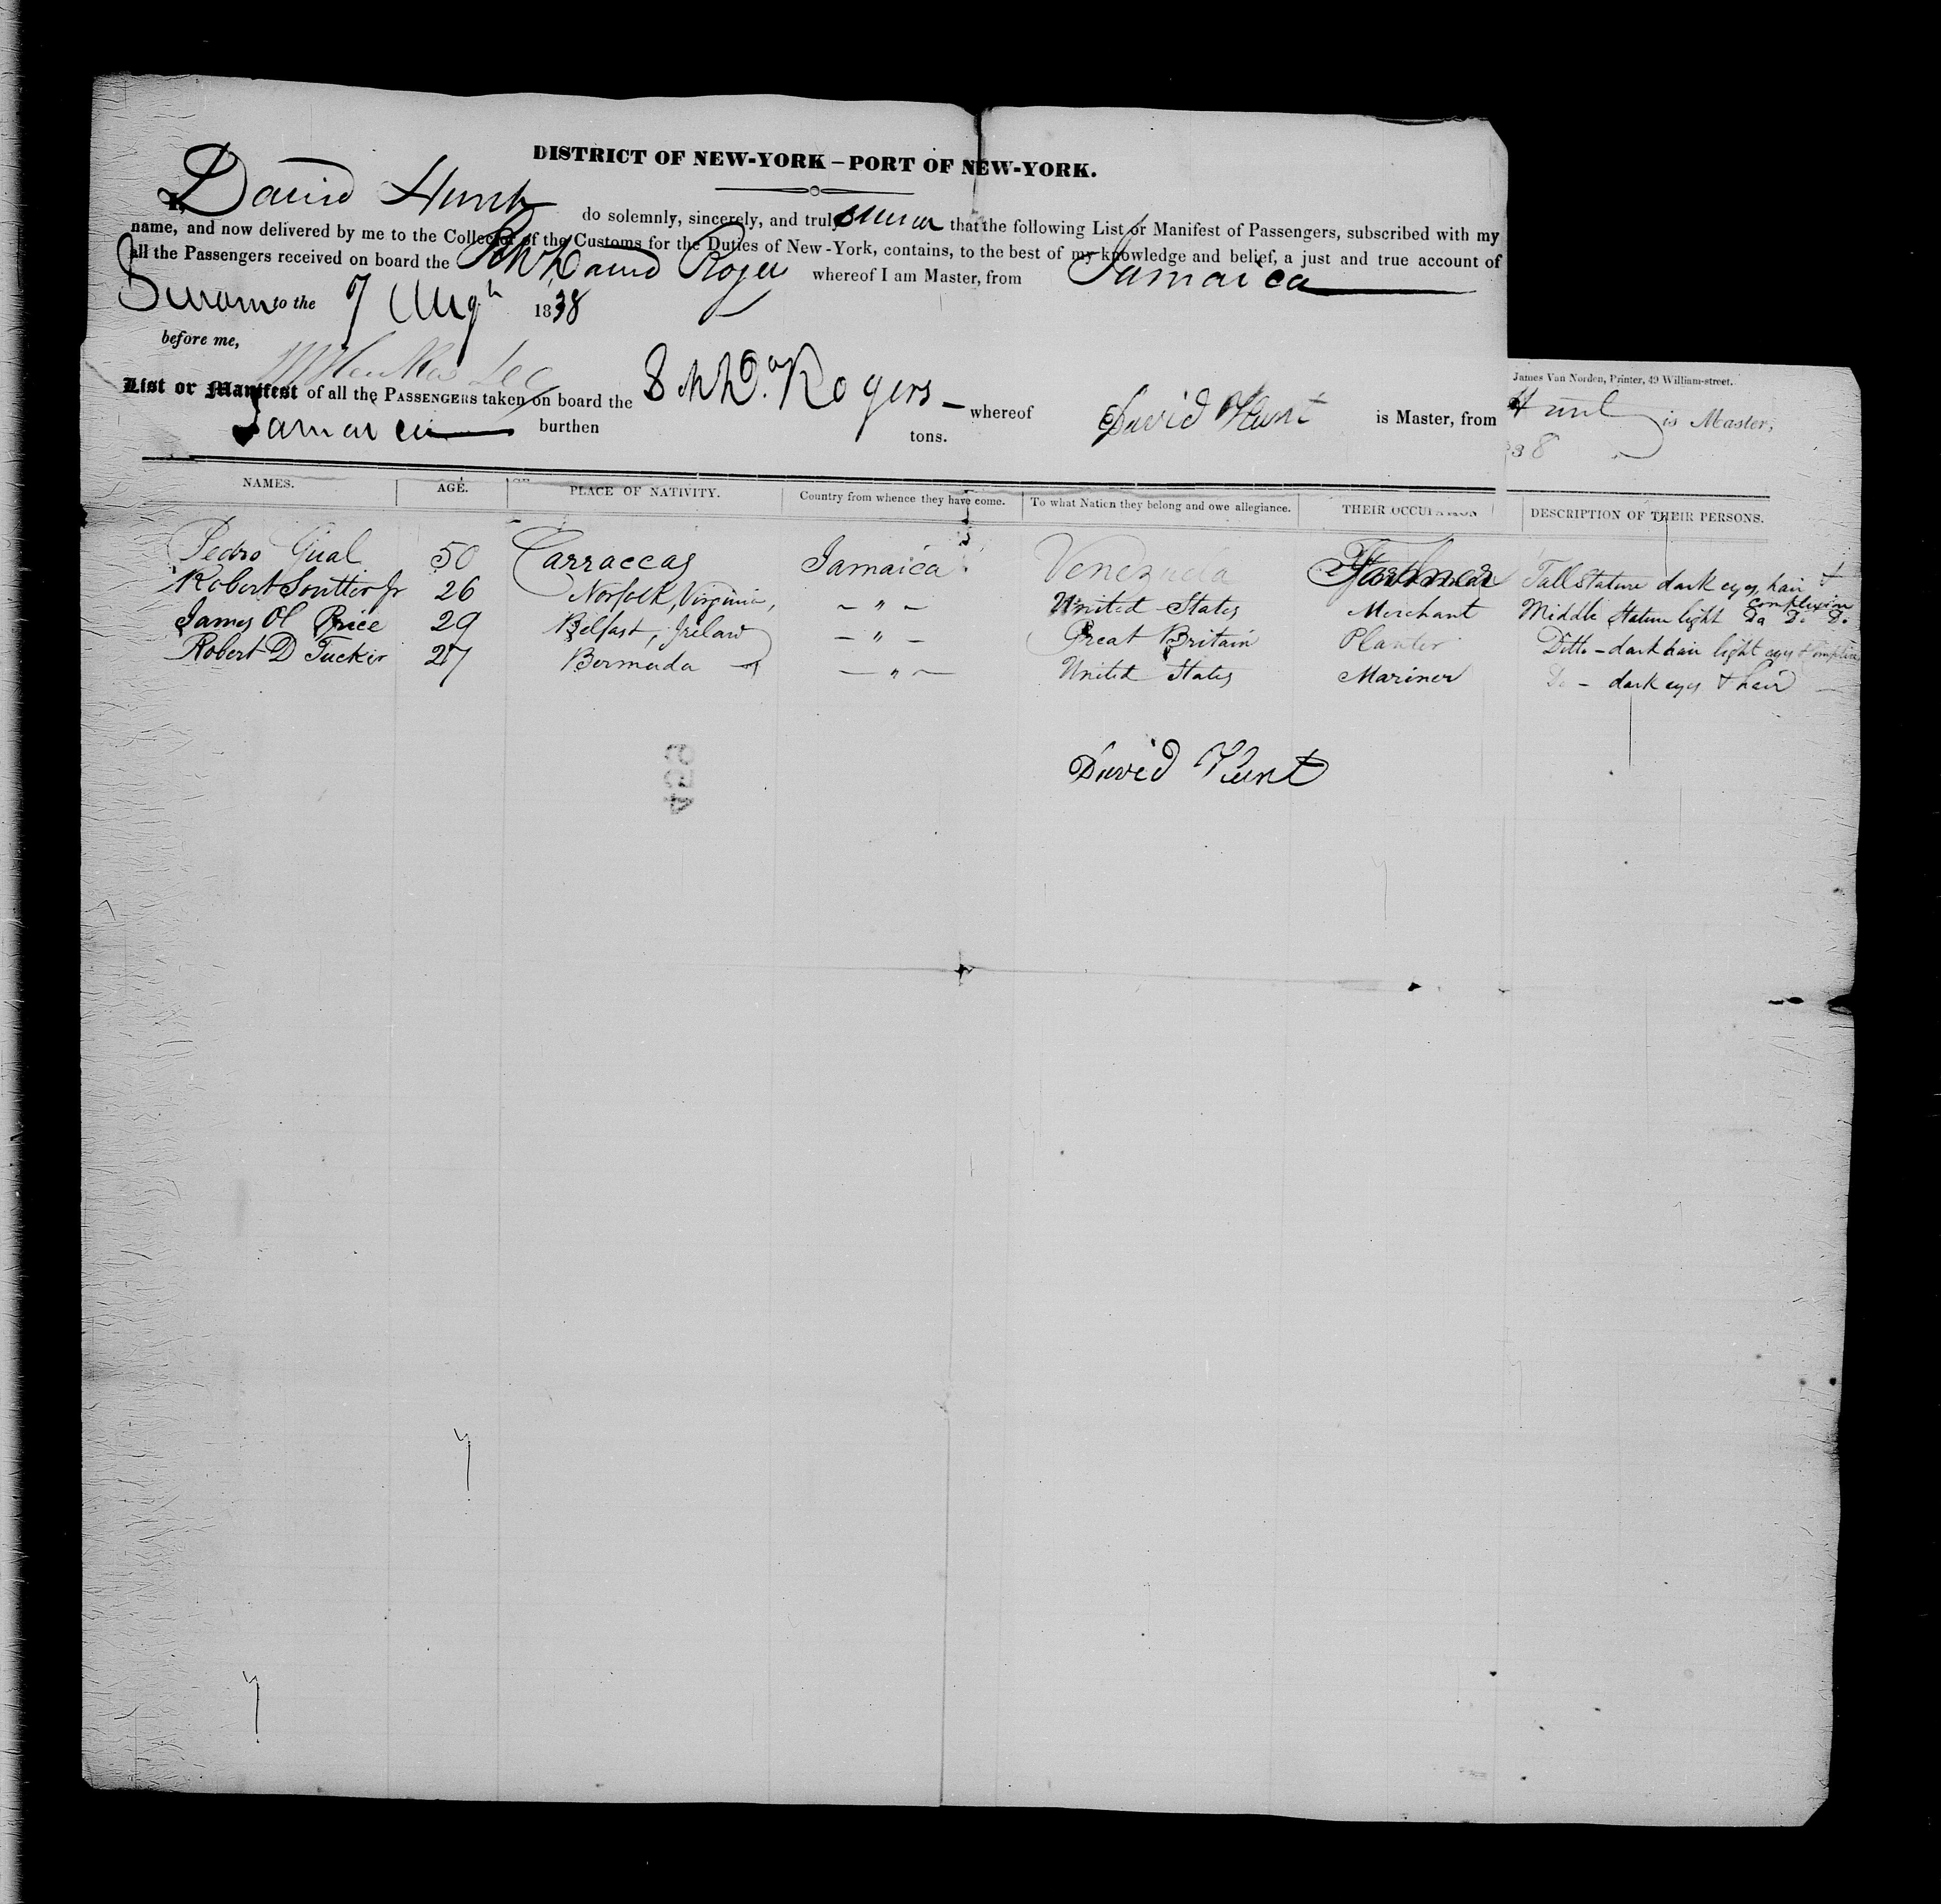 DISTRICT OF NEW-YORK – PORT OF NEW-YORK.
I, David Hunt do solemnly, sincerely, and truly swear that the following List or Manifest of Passengers, subscribed with my
name, and now delivered by me to the Collector of the Customs for the Duties of New-York, contains, to the best of my knowledge and belief, a just and true account of
all the Passengers received on board the Schr David Roger whereof I am Master, from Jamaica
Sworn to the 7 Augt 1838
before me,
James Van Norden, Printer, 49 William-street.
List or Manifest of all the PASSENGERS taken on board the Schr Da Rogers whereof David Hunt is Master, from Hunt is Master,
Jamaica burthen tons. 38
NAMES. AGE. PLACE OF NATIVITY. Country from whence they have come. To what Nation they belong and owe allegiance. THEIR OCCUPATION DESCRIPTION OF THEIR PERSONS.
Pedro Gual 50 Carraccas Jamaica Venezuela Tall Stature dark eyes, hair & complexion
Robert Soutter Jr 26 Norfolk, Virginia, – " – United States Merchant Middle Stature light Do Do Do
James Price 29 Belfast, Ireland – " – Great Britain Planter Ditto – dark hair light eyes & complexion
Robert D Tucker 27 Bermuda – " – United States Mariner Do – dark eyes & hair
David Hunt
422